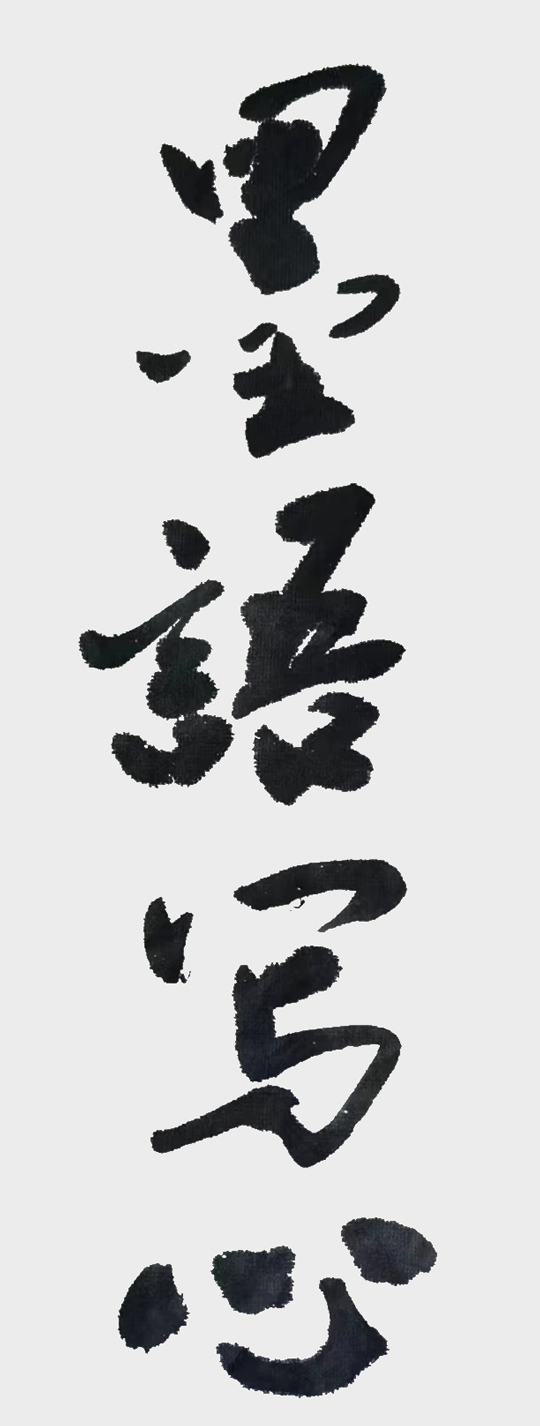 墨語写心